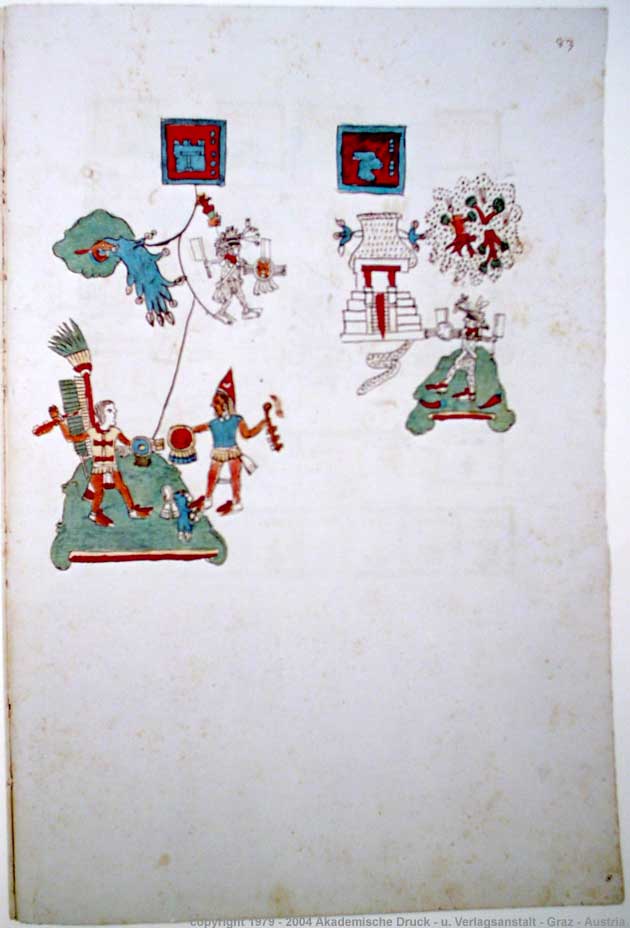 83
copyright 1979 - 2004 Akademische Druck - u. Verlagsanstalt - Graz - Austria